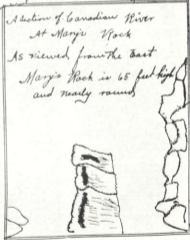 A Section of Canadian River
At Mary's Rock
As viewed from the East
Mary's Rock is 65 feet high
and nearly round